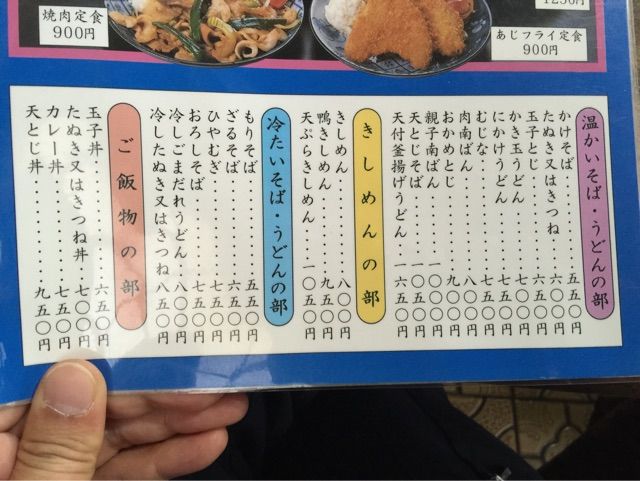 焼肉定食
900円
あじフライ定食
900円
温かいそば・うどんの部
かけそば‥‥‥‥五五〇円
たぬき又はきつね‥‥六五〇円
玉子とじ‥‥‥‥六五〇円
かき玉うどん‥‥‥‥
にかけうどん‥‥‥‥
むじな‥‥‥‥
肉南ばん‥‥‥‥
おかめとじ‥‥‥‥
親子南ばん‥‥‥‥
天とじそば‥‥‥‥
天付釜揚げうどん‥‥
きしめんの部
きしめん‥‥‥‥八〇〇円
鴨きしめん‥‥‥‥九五〇円
天ぷらきしめん‥‥一〇五〇円
冷たいそば・うどんの部
もりそば‥‥‥‥五五〇円
ざるそば‥‥‥‥六五〇円
ひやむぎ‥‥‥‥七五〇円
おろしそば‥‥‥‥七五〇円
冷しごまだれうどん‥‥八〇〇円
冷したぬき又はきつね‥‥八五〇円
ご飯物の部
玉子丼‥‥‥‥六五〇円
たぬき又はきつね丼‥‥七五〇円
カレー丼‥‥‥‥七五〇円
天とじ丼‥‥‥‥九五〇円